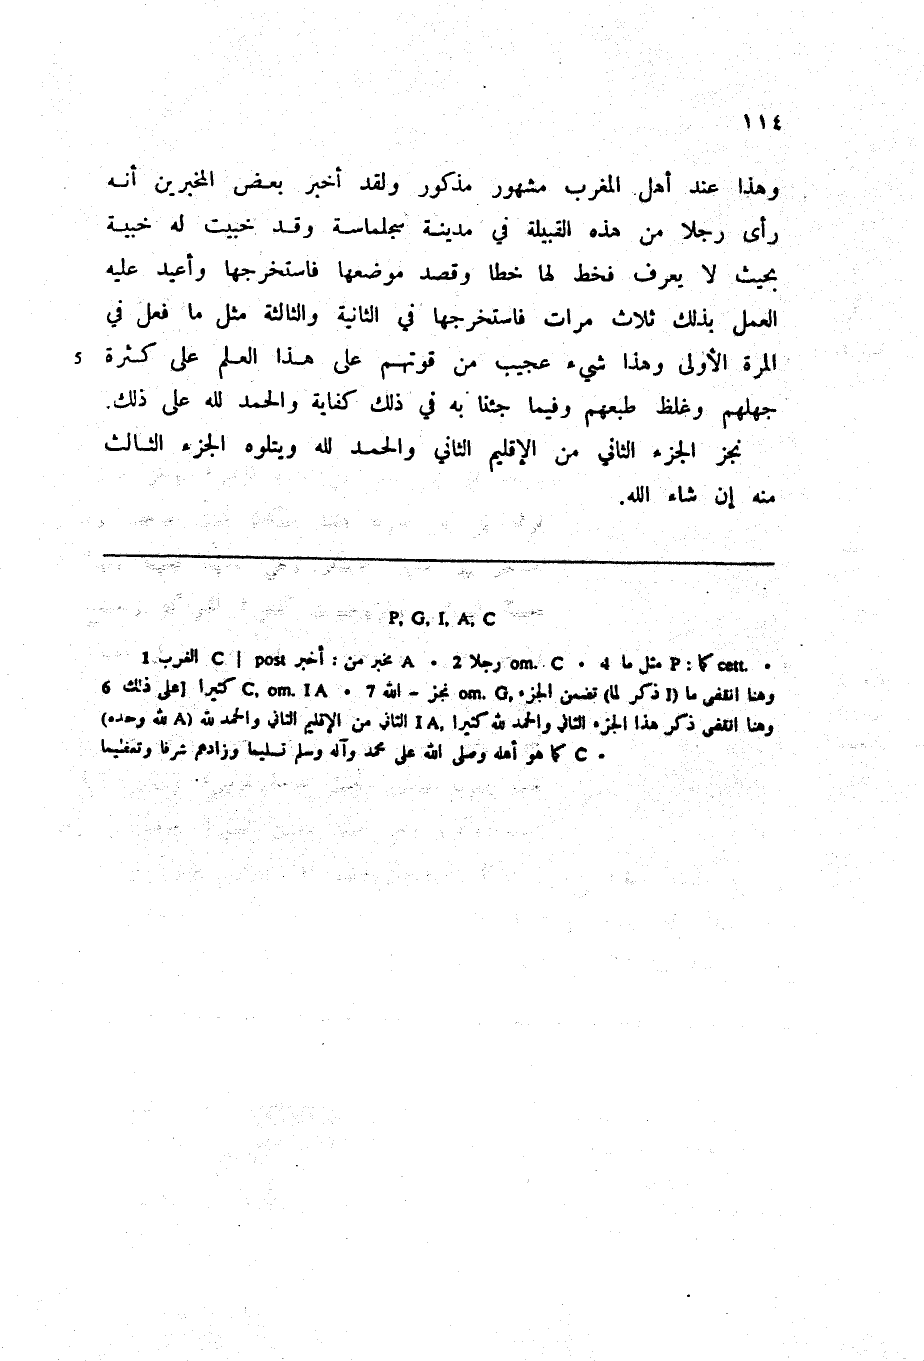 ١١٤
وهذا عند أهل المغرب مشهور مذكور ولقد أخبر بعض المخبرين أنه
رأى رجلا من هذه القبيلة في مدينة سجلماسة وقد خبيت له خبية
بحيث لا يعرف فخط لها خطا وقصد موضعها فاستخرجها وأعيد عليه
العمل بذلك ثلاث مرات فاستخرجها في الثانية والثالثة مثل ما فعل في
المرة الأولى وهذا شيء عجيب من قوتهم على هذا العلم على كثرة 5
جهلهم وغلظ طبعهم وفيما جئنا به في ذلك كفاية والحمد لله على ذلك.
نجز الجزء الثاني من الإقليم الثاني والحمد لله ويتلوه الجزء الثالث
منه إن شاء الله.
P, G, I, A, C
1 الغرب C | post أخبر : مخبر من A • 2 رجلا om. C • 4 مثل ما P : كما cett. •
6 على ذلك] كثيرا C, om. I A • 7 نجز – الله om. G, وهنا انقضى ما (I ذكر لما) تضمن الجزء
الثاني من الإقليم الثاني والحمد لله (A لله وحده) I A, وهنا انقضى ذكر هذا الجزء الثاني والحمد لله كثيرا
كما هو أهله وصلى الله على محمد وآله وسلم تسليما وزادهم شرفا وتعظيما C •